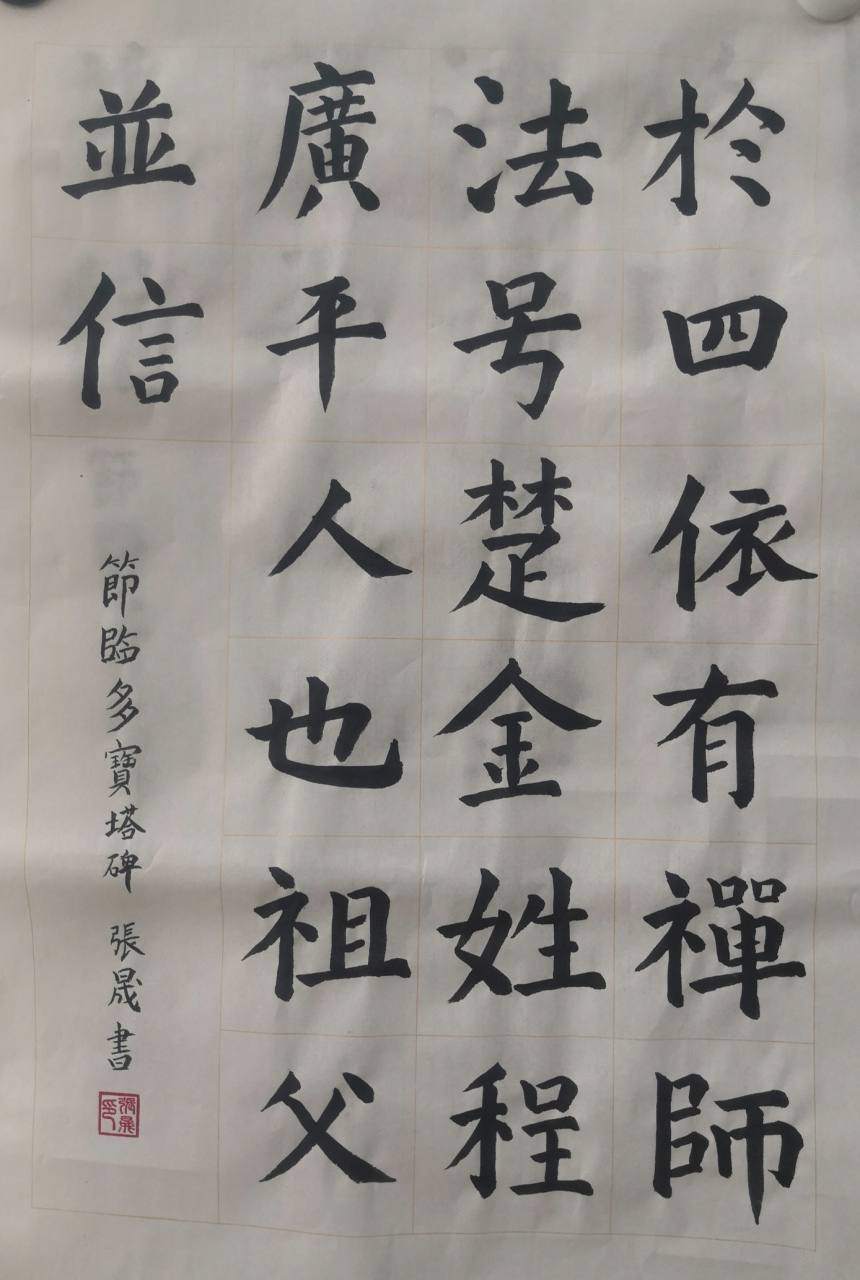 於四依有禪師
法号楚金姓程
廣平人也祖父
並信
節臨多寶塔碑 張晟書
張晟印